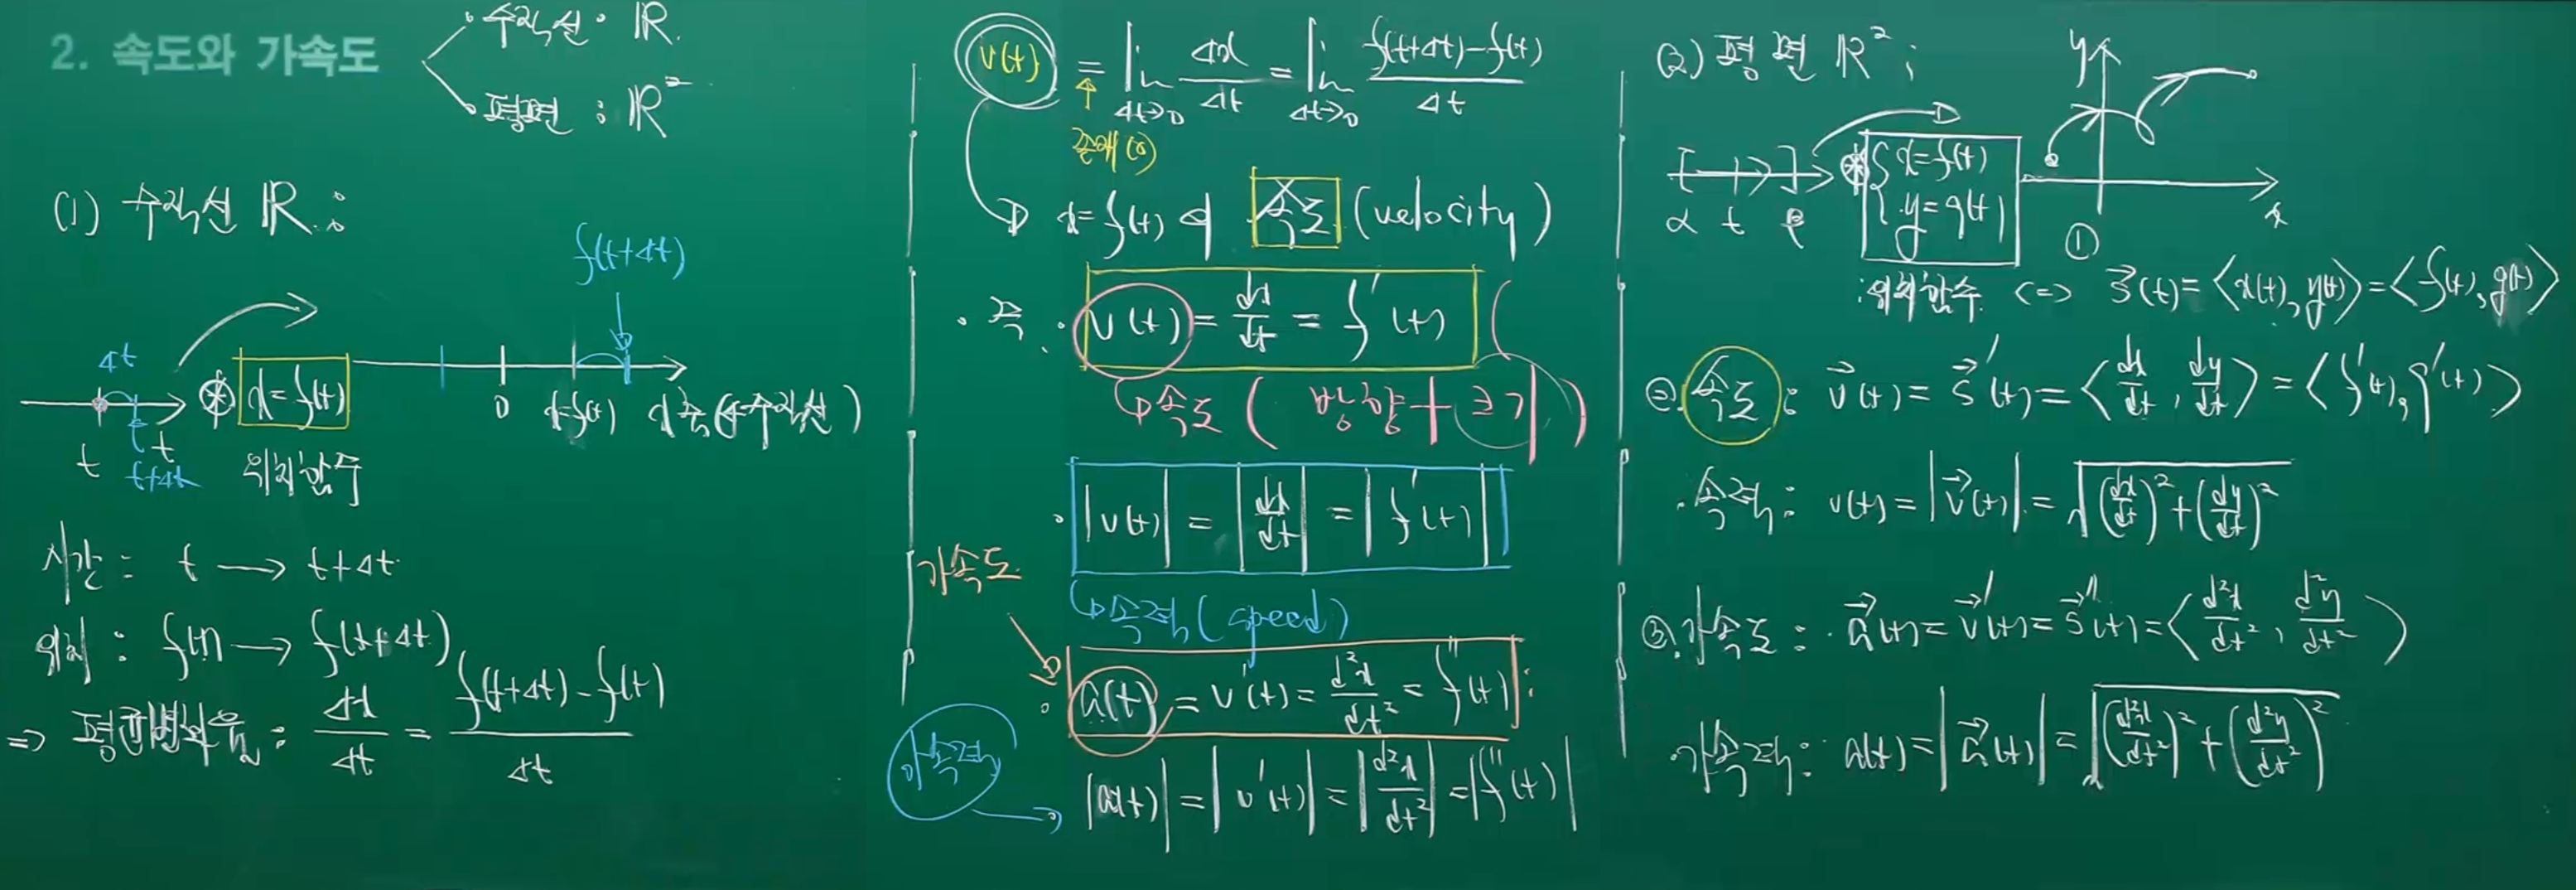 2. 속도와 가속도
수직선 : ℝ.
평면 : ℝ²
(1) 수직선 ℝ :
f(t+Δt)
Δt
x=f(t)
0 x=f(t) x축(수직선)
t t
t+Δt
위치함수
시간 : t → t+Δt
위치 : f(t) → f(t+Δt)
⇒ 평균변화율 : Δx/Δt = (f(t+Δt)-f(t))/Δt
v(t) = lim_{Δt→0} Δx/Δt = lim_{Δt→0} (f(t+Δt)-f(t))/Δt
존재(o)
x=f(t)의 속도 (velocity)
· 즉. v(t) = dx/dt = f'(t) (
속도 ( 방향 + 크기 )
· |v(t)| = |dx/dt| = |f'(t)|
속력 (speed)
가속도
· a(t) = v'(t) = d²x/dt² = f''(t) :
가속력
|a(t)| = |v'(t)| = |d²x/dt²| = |f''(t)|
(2) 평면 ℝ² ;
y
x
α t β
{ x=f(t)
y=g(t)
①
: 위치함수 <=> s⃗(t) = <x(t), y(t)> = <f(t), g(t)>
② 속도 : v⃗(t) = s⃗'(t) = <dx/dt, dy/dt> = <f'(t), g'(t)>
· 속력 : v(t) = |v⃗(t)| = √((dx/dt)² + (dy/dt)²)
③ 가속도 : a⃗(t) = v⃗'(t) = s⃗''(t) = <d²x/dt², d²y/dt²>
· 가속력 : a(t) = |a⃗(t)| = √((d²x/dt²)² + (d²y/dt²)²)